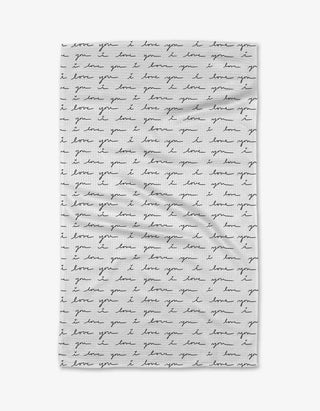 i love you i love you i
you i love you i
i love you i love you i
you i love you i
i love you i love you i
you i love you i
i love you i love you i
you i love you i
i love you i love you i
you i love you i
i love you i love you i
you i love you i
i love you i love you i
you i love you i
i love you i love you i
you i love you i
i love you i love you i
you i love you i
i love you i love you i
you i love you i
i love you i love you i
you i love you i
i love you i love you i
you i love you i
i love you i love you i
you i love you i
i love you i love you i
you i love you i
i love you i love you i
you i love you i
i love you i love you i